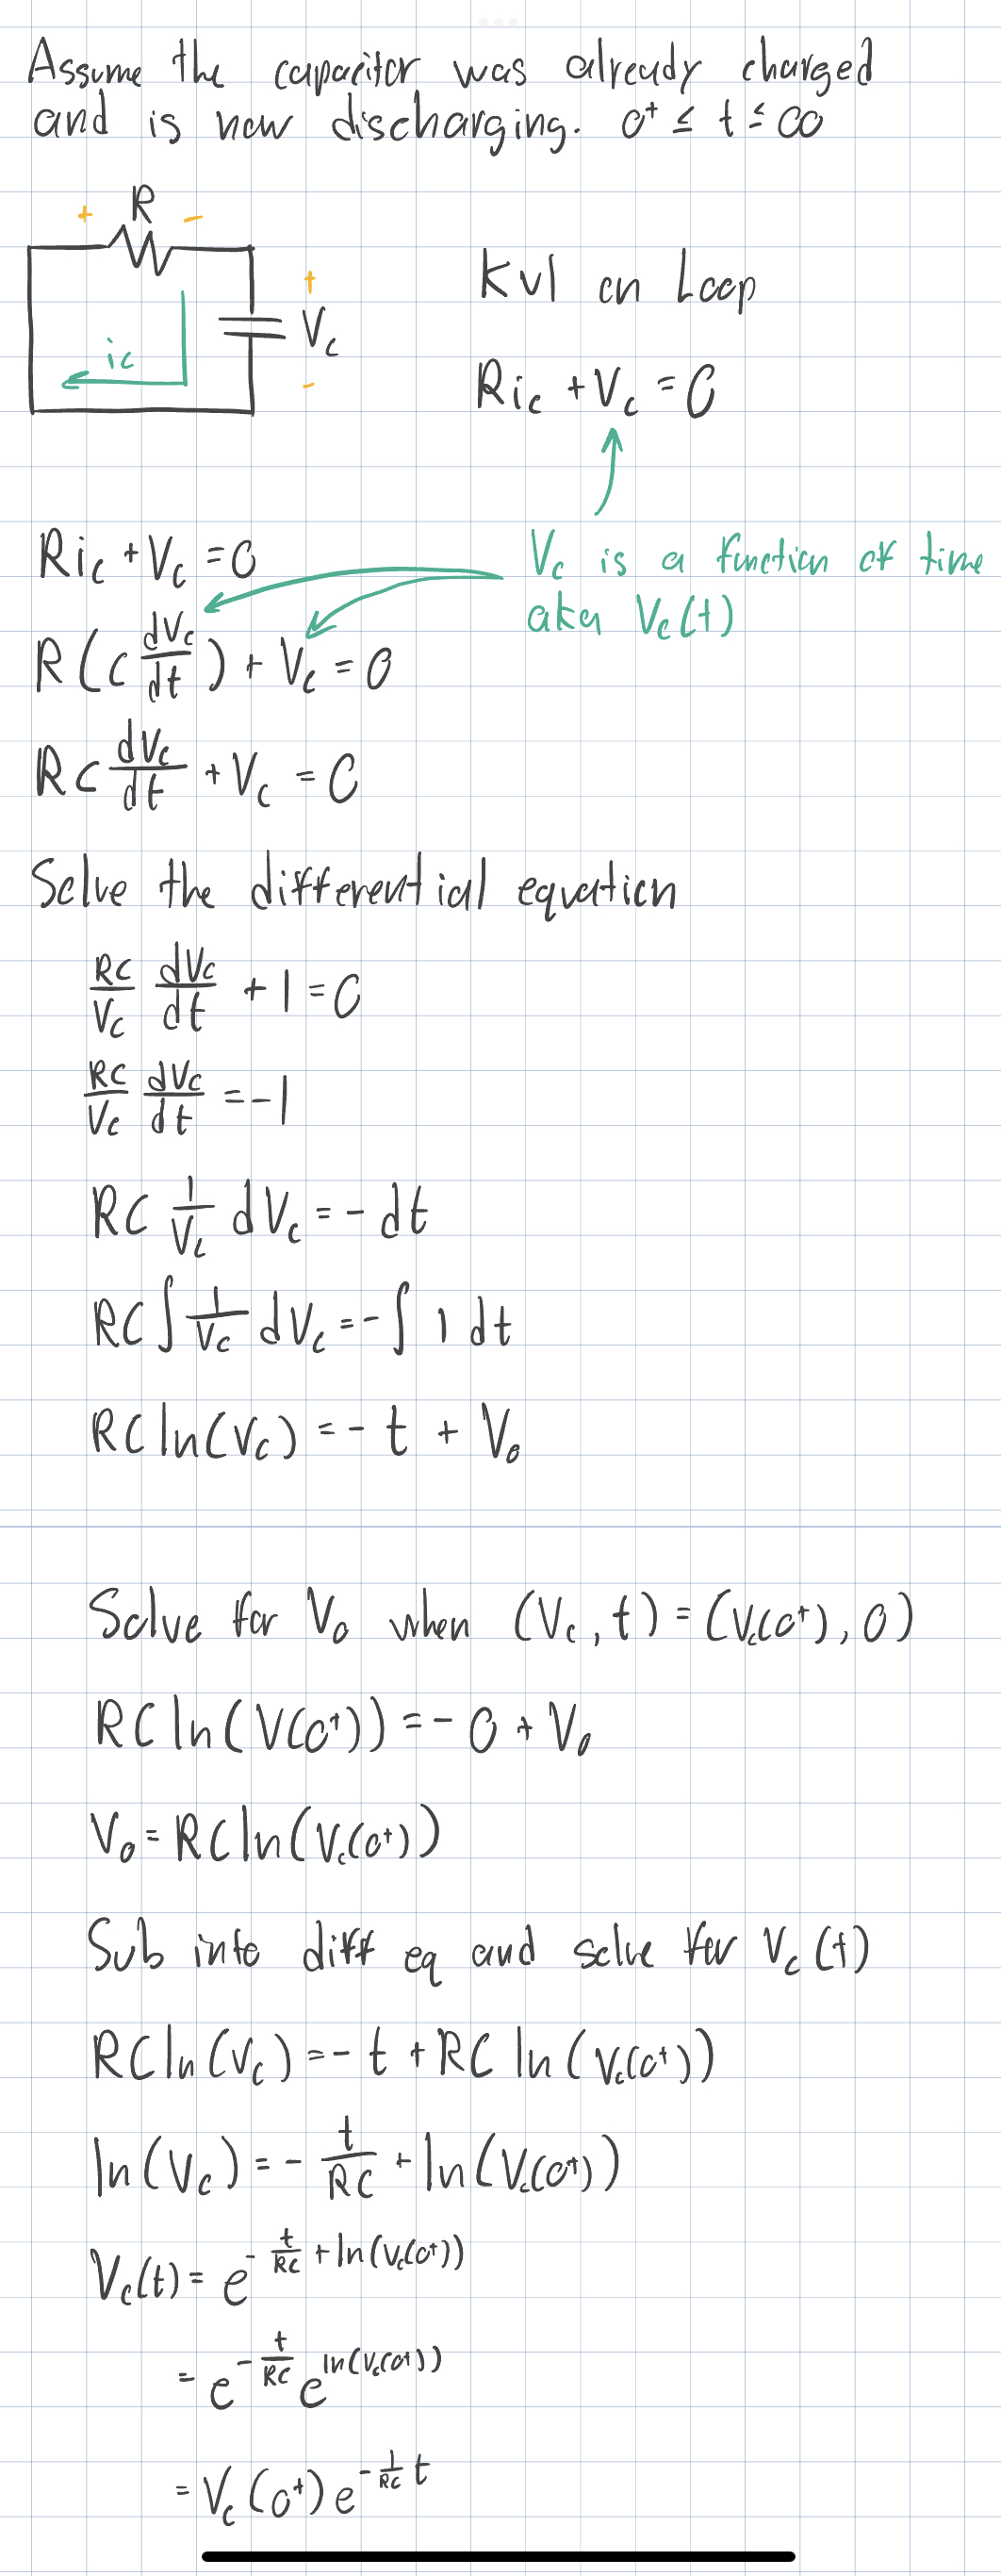 Assume the capacitor was already charged
and is now discharging. 0⁺ ≤ t ≤ ∞
+ R -
+
Vc
-
ic
KVl on Loop
Ric + Vc = 0
Ric + Vc = 0
Vc is a function of time
aka Vc(t)
R(C dVc/dt) + Vc = 0
RC dVc/dt + Vc = 0
Solve the differential equation
RC/Vc dVc/dt + 1 = 0
RC/Vc dVc/dt = -1
RC 1/Vc dVc = - dt
RC ∫ 1/Vc dVc = - ∫ 1 dt
RC ln(Vc) = - t + V₀
Solve for V₀ when (Vc, t) = (Vc(0⁺), 0)
RC ln(V(0⁺)) = - 0 + V₀
V₀ = RC ln(Vc(0⁺))
Sub into diff eq and solve for Vc(t)
RC ln(Vc) = - t + RC ln(Vc(0⁺))
ln(Vc) = - t/RC + ln(Vc(0⁺))
Vc(t) = e^(- t/RC + ln(Vc(0⁺)))
= e^(- t/RC) e^(ln(Vc(0⁺)))
= Vc(0⁺) e^(- 1/RC t)